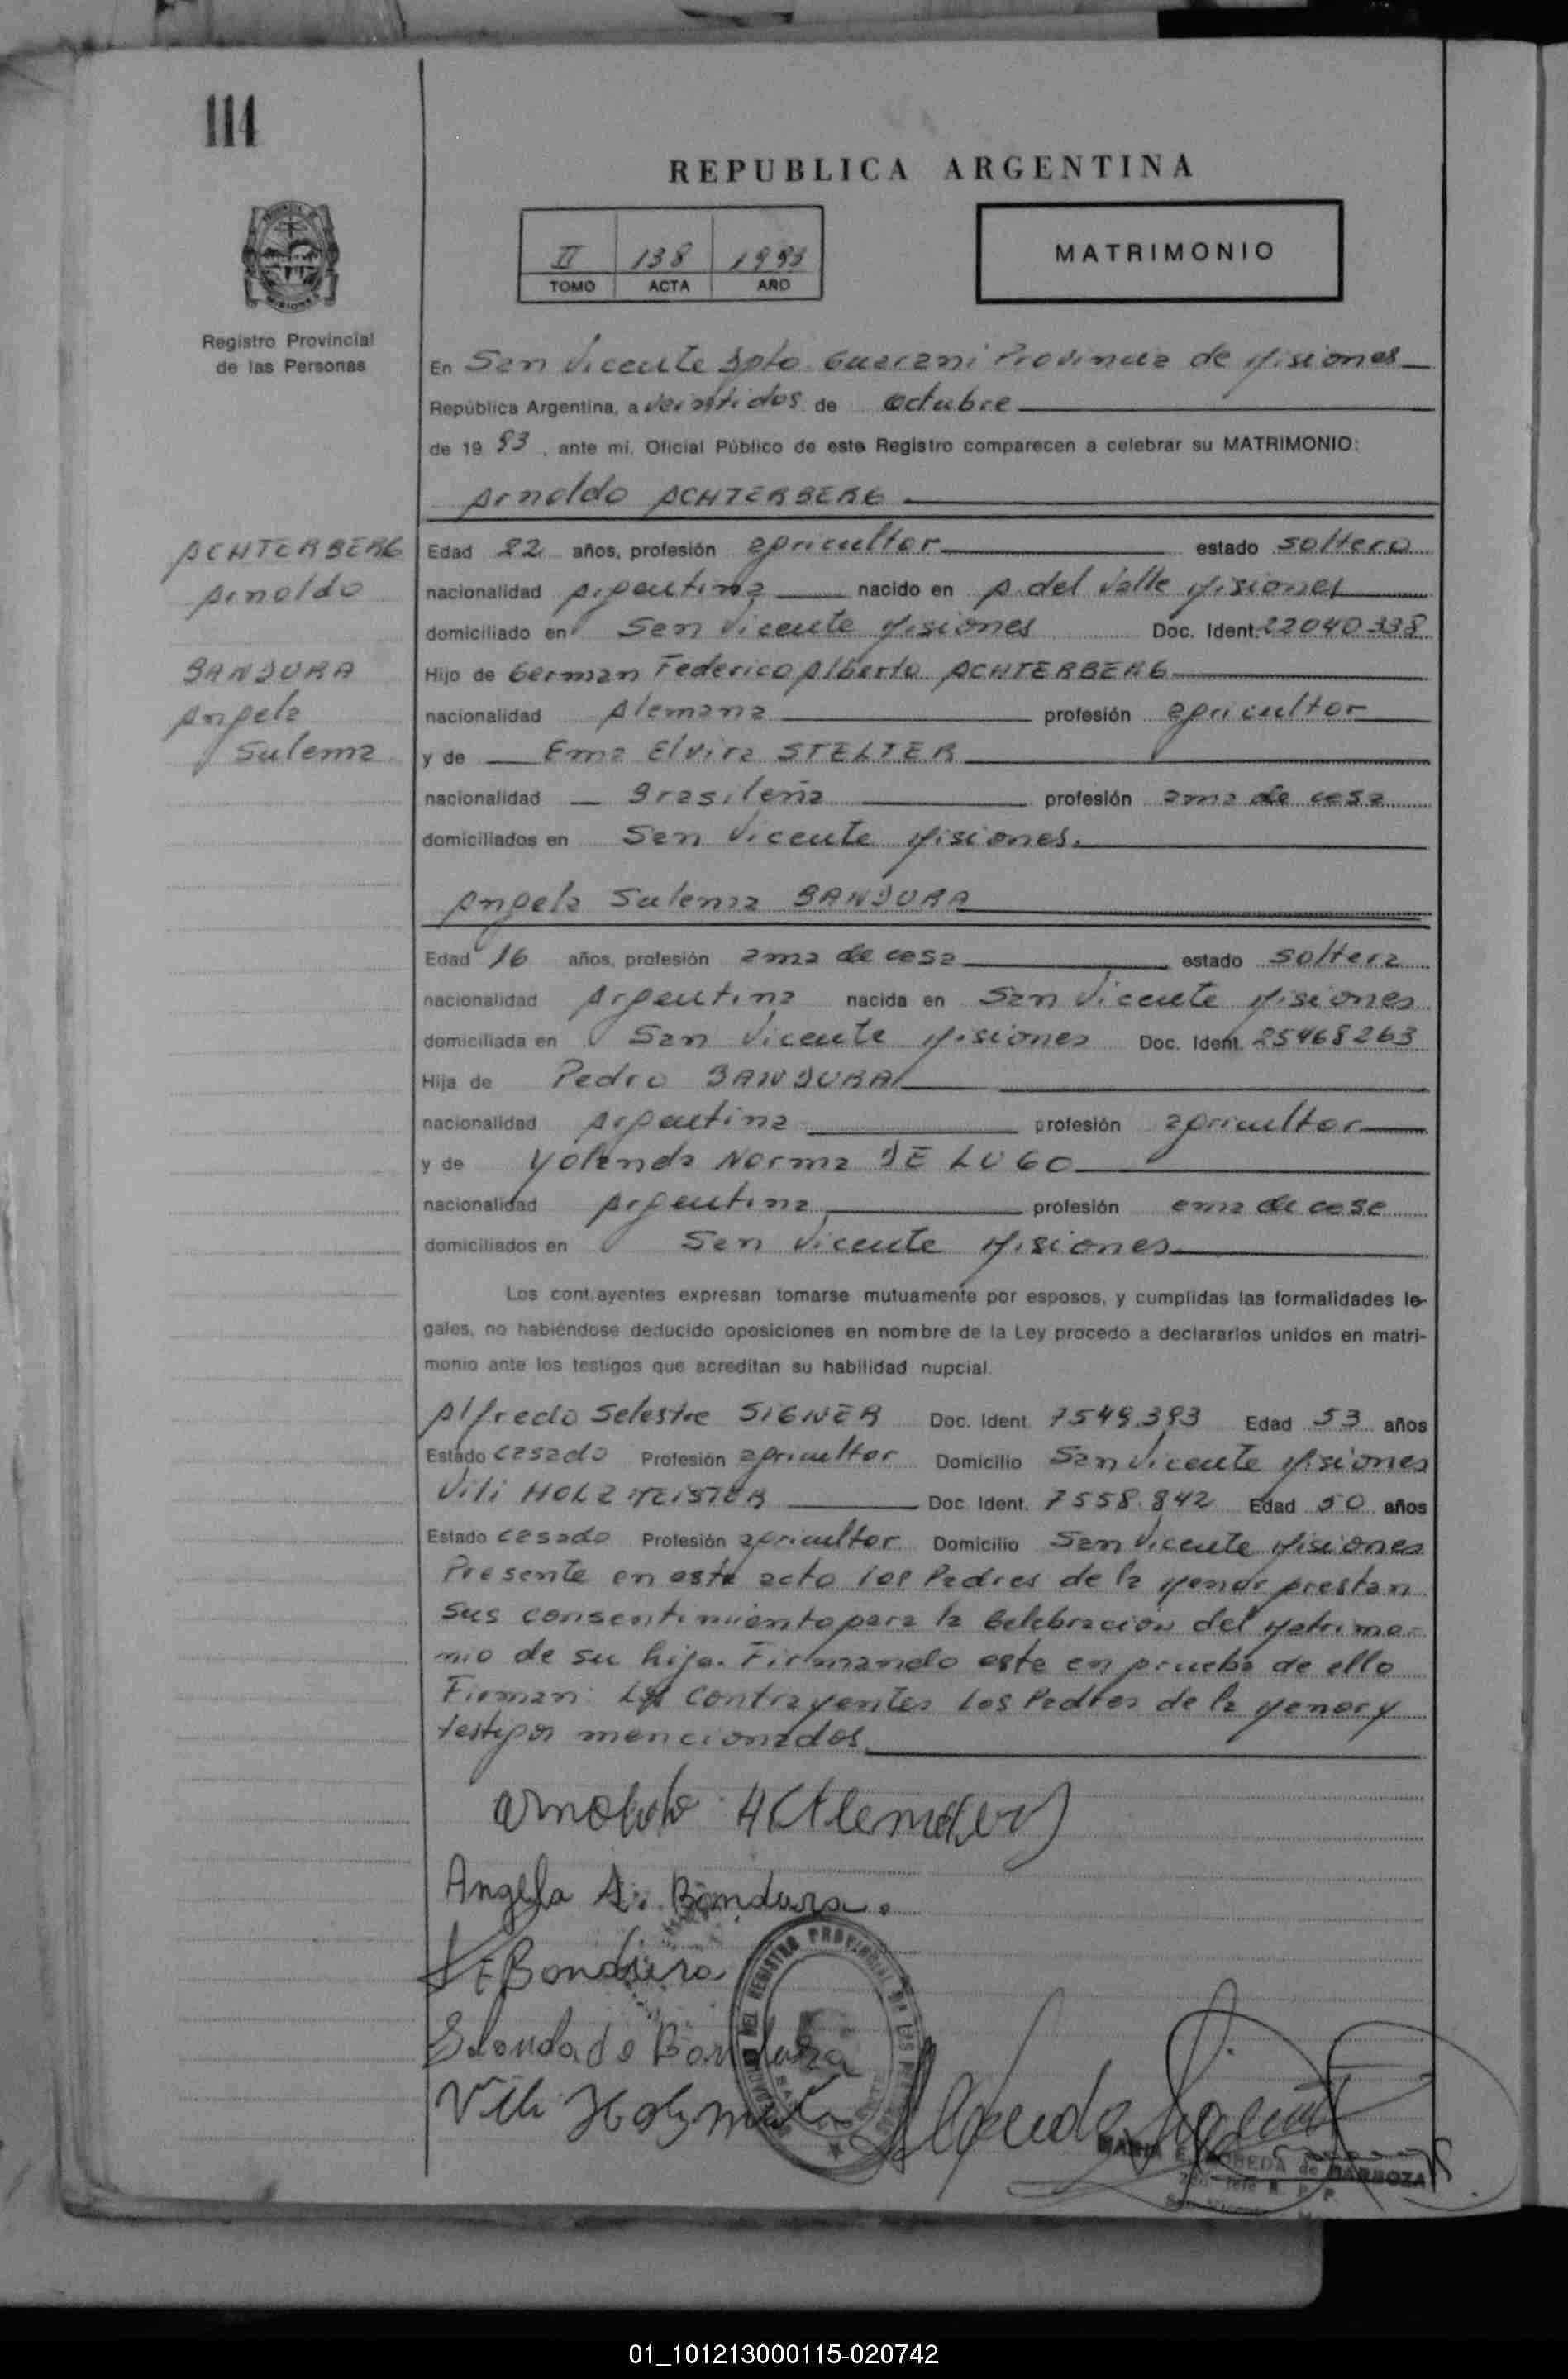 114
REPUBLICA ARGENTINA
II 138 1993
TOMO ACTA AÑO
MATRIMONIO
Registro Provincial
de las Personas
En San Vicente Dpto. Guarani Provincia de Misiones
República Argentina, a veintidos de octubre
de 19 93, ante mi, Oficial Público de este Registro comparecen a celebrar su MATRIMONIO:
Arnoldo ACHTERBERG
ACHTERBERG
Arnoldo
BANDURA
Angela
Sulema
Edad 22 años, profesión agricultor estado soltero
nacionalidad Argentina nacido en A. del Valle Misiones
domiciliado en San Vicente Misiones Doc. Ident. 22040338
Hijo de German Federico Alberto ACHTERBERG
nacionalidad Alemana profesión agricultor
y de Ema Elvira STELTER
nacionalidad Brasileña profesión ama de casa
domiciliados en San Vicente Misiones.
Angela Sulema BANDURA
Edad 16 años, profesión ama de casa estado soltera
nacionalidad Argentina nacida en San Vicente Misiones
domiciliada en San Vicente Misiones Doc. Ident. 25468263
Hija de Pedro BANDURA
nacionalidad Argentina profesión agricultor
y de Yolanda Norma DE LUGO
nacionalidad Argentina profesión ama de casa
domiciliados en San Vicente Misiones
Los contrayentes expresan tomarse mutuamente por esposos, y cumplidas las formalidades le-
gales, no habiéndose deducido oposiciones en nombre de la Ley procedo a declararlos unidos en matri-
monio ante los testigos que acreditan su habilidad nupcial.
Alfredo Selestre SIGNER Doc. Ident. 7549.393 Edad 53 años
Estado casado Profesión agricultor Domicilio San Vicente Misiones
Vili HOLZMEISTER Doc. Ident. 7558.842 Edad 50 años
Estado casado Profesión agricultor Domicilio San Vicente Misiones
Presente en este acto los Padres de la Menor prestan
sus consentimiento para la Celebracion del Matrimo-
nio de su hija. Firmando este en prueba de ello
Firman: Los Contrayentes los Padres de la Menor y
testigos mencionados
Arnoldo
Angela S. Bandura.
Bandura
Bandura
Vili
REGISTRO PROVINCIAL DE LAS
MARIA E. de BARBOZA
01_101213000115-020742